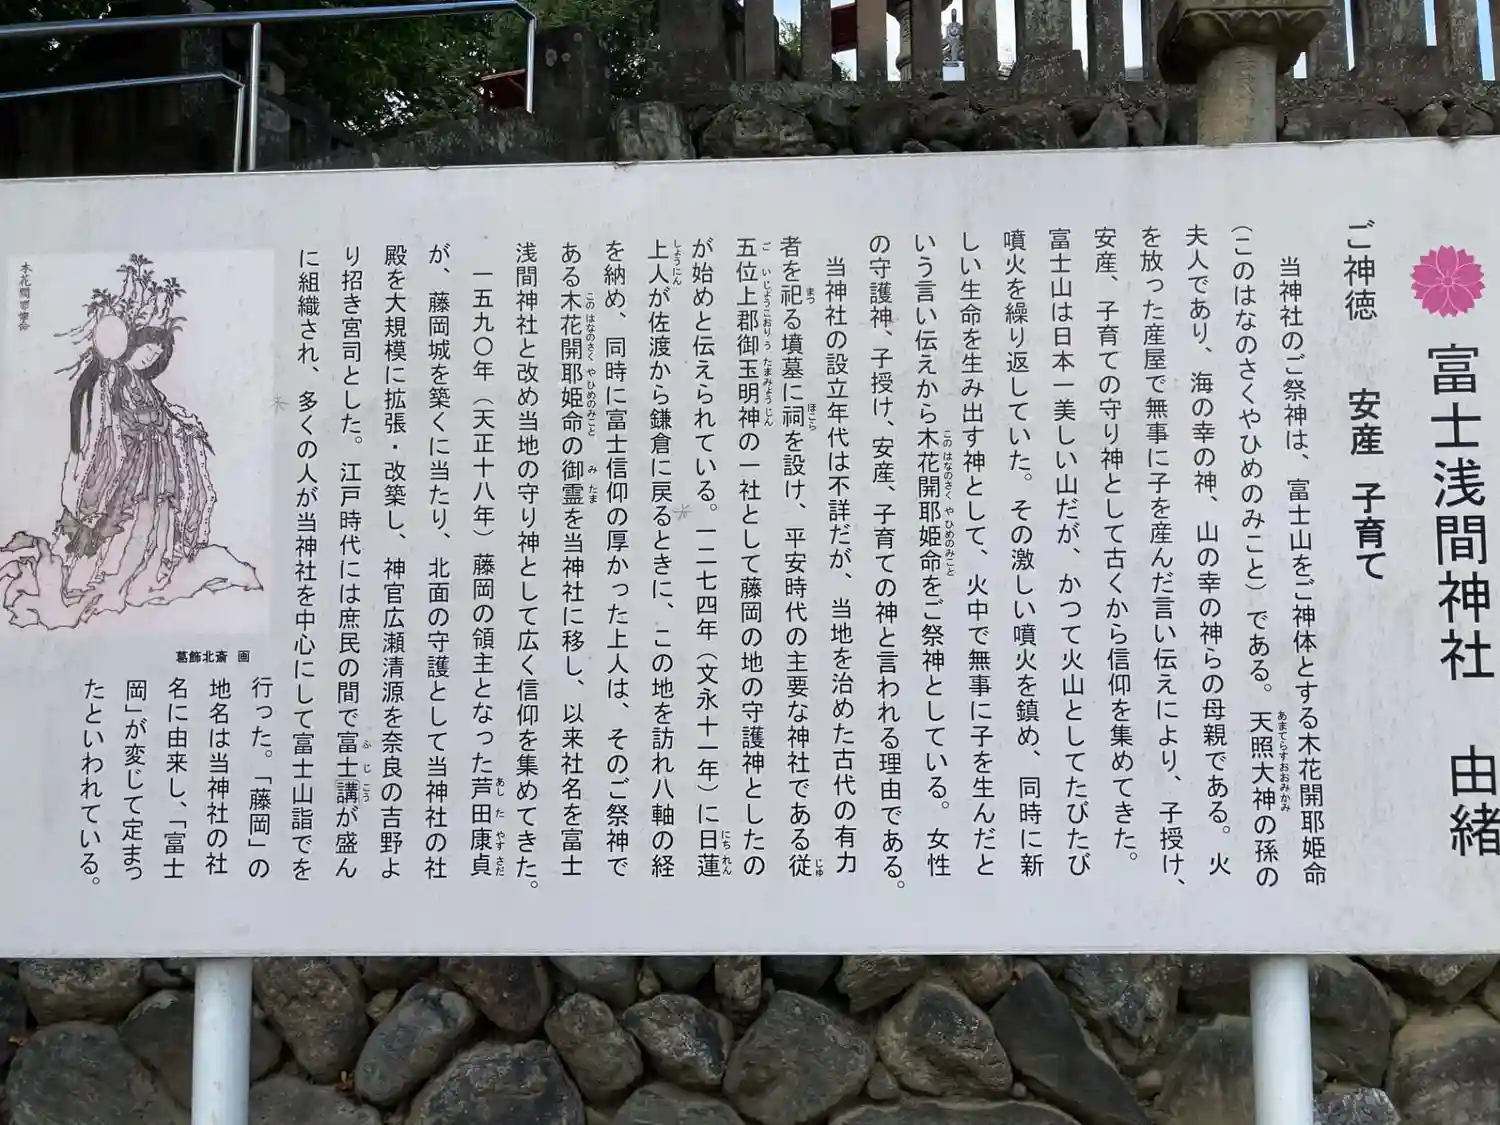 富士浅間神社　由緒
ご神徳　安産　子育て
当神社のご祭神は、富士山をご神体とする木花開耶姫命
(このはなのさくやひめのみこと）である。天照大神の孫の
夫人であり、海の幸の神、山の幸の神らの母親である。火
を放った産屋で無事に子を産んだ言い伝えにより、子授け、
安産、子育ての守り神として古くから信仰を集めてきた。
富士山は日本一美しい山だが、かつて火山としてたびたび
噴火を繰り返していた。その激しい噴火を鎮め、同時に新
しい生命を生み出す神として、火中で無事に子を生んだと
いう言い伝えから木花開耶姫命をご祭神としている。女性
の守護神、子授け、安産、子育ての神と言われる理由である。
当神社の設立年代は不詳だが、当地を治めた古代の有力
者を祀る墳墓に祠を設け、平安時代の主要な神社である従
五位上郡御玉明神の一社として藤岡の地の守護神としたの
が始めと伝えられている。一二七四年（文永十一年）に日蓮
上人が佐渡から鎌倉に戻るときに、この地を訪れ八軸の経
を納め、同時に富士信仰の厚かった上人は、そのご祭神で
ある木花開耶姫命の御霊を当神社に移し、以来社名を富士
浅間神社と改め当地の守り神として広く信仰を集めてきた。
一五九〇年（天正十八年）藤岡の領主となった芦田康貞
が、藤岡城を築くに当たり、北面の守護として当神社の社
殿を大規模に拡張・改築し、神官広瀬清源を奈良の吉野よ
り招き宮司とした。江戸時代には庶民の間で富士講が盛ん
に組織され、多くの人が当神社を中心にして富士山詣でを
行った。「藤岡」の
地名は当神社の社
名に由来し、「富士
岡」が変じて定まっ
たといわれている。
葛飾北斎　画
木花開耶姫命